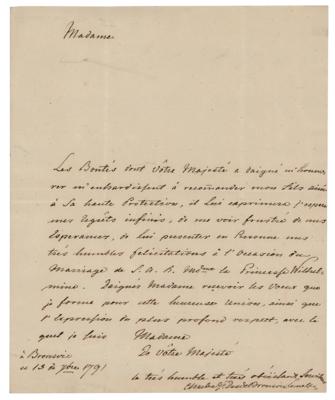 Madame
Les Bontés dont Vôtre Majesté a daigné m'honno-
rer m'enhardissent à recomander mon fils ainé
à Sa haute Protection, il Lui exprimera
mes regrèts infinis, de me voir frustré de mes
esperances, de lui presenter en Personne mes
très humbles felicitations à l'Occasion du
Mariage de S. A. R. Mdme la Princesse Wilhel-
mine. Daignés Madame recevoir les Voeux que
je forme pour cette heureuse Union, ainsi que
l'expression du plus profond respect, avec le
quel je suis Madame
De Vôtre Majesté
à Bronsvic
ce 13 de 7bre 1791
le très humble et très obeissant